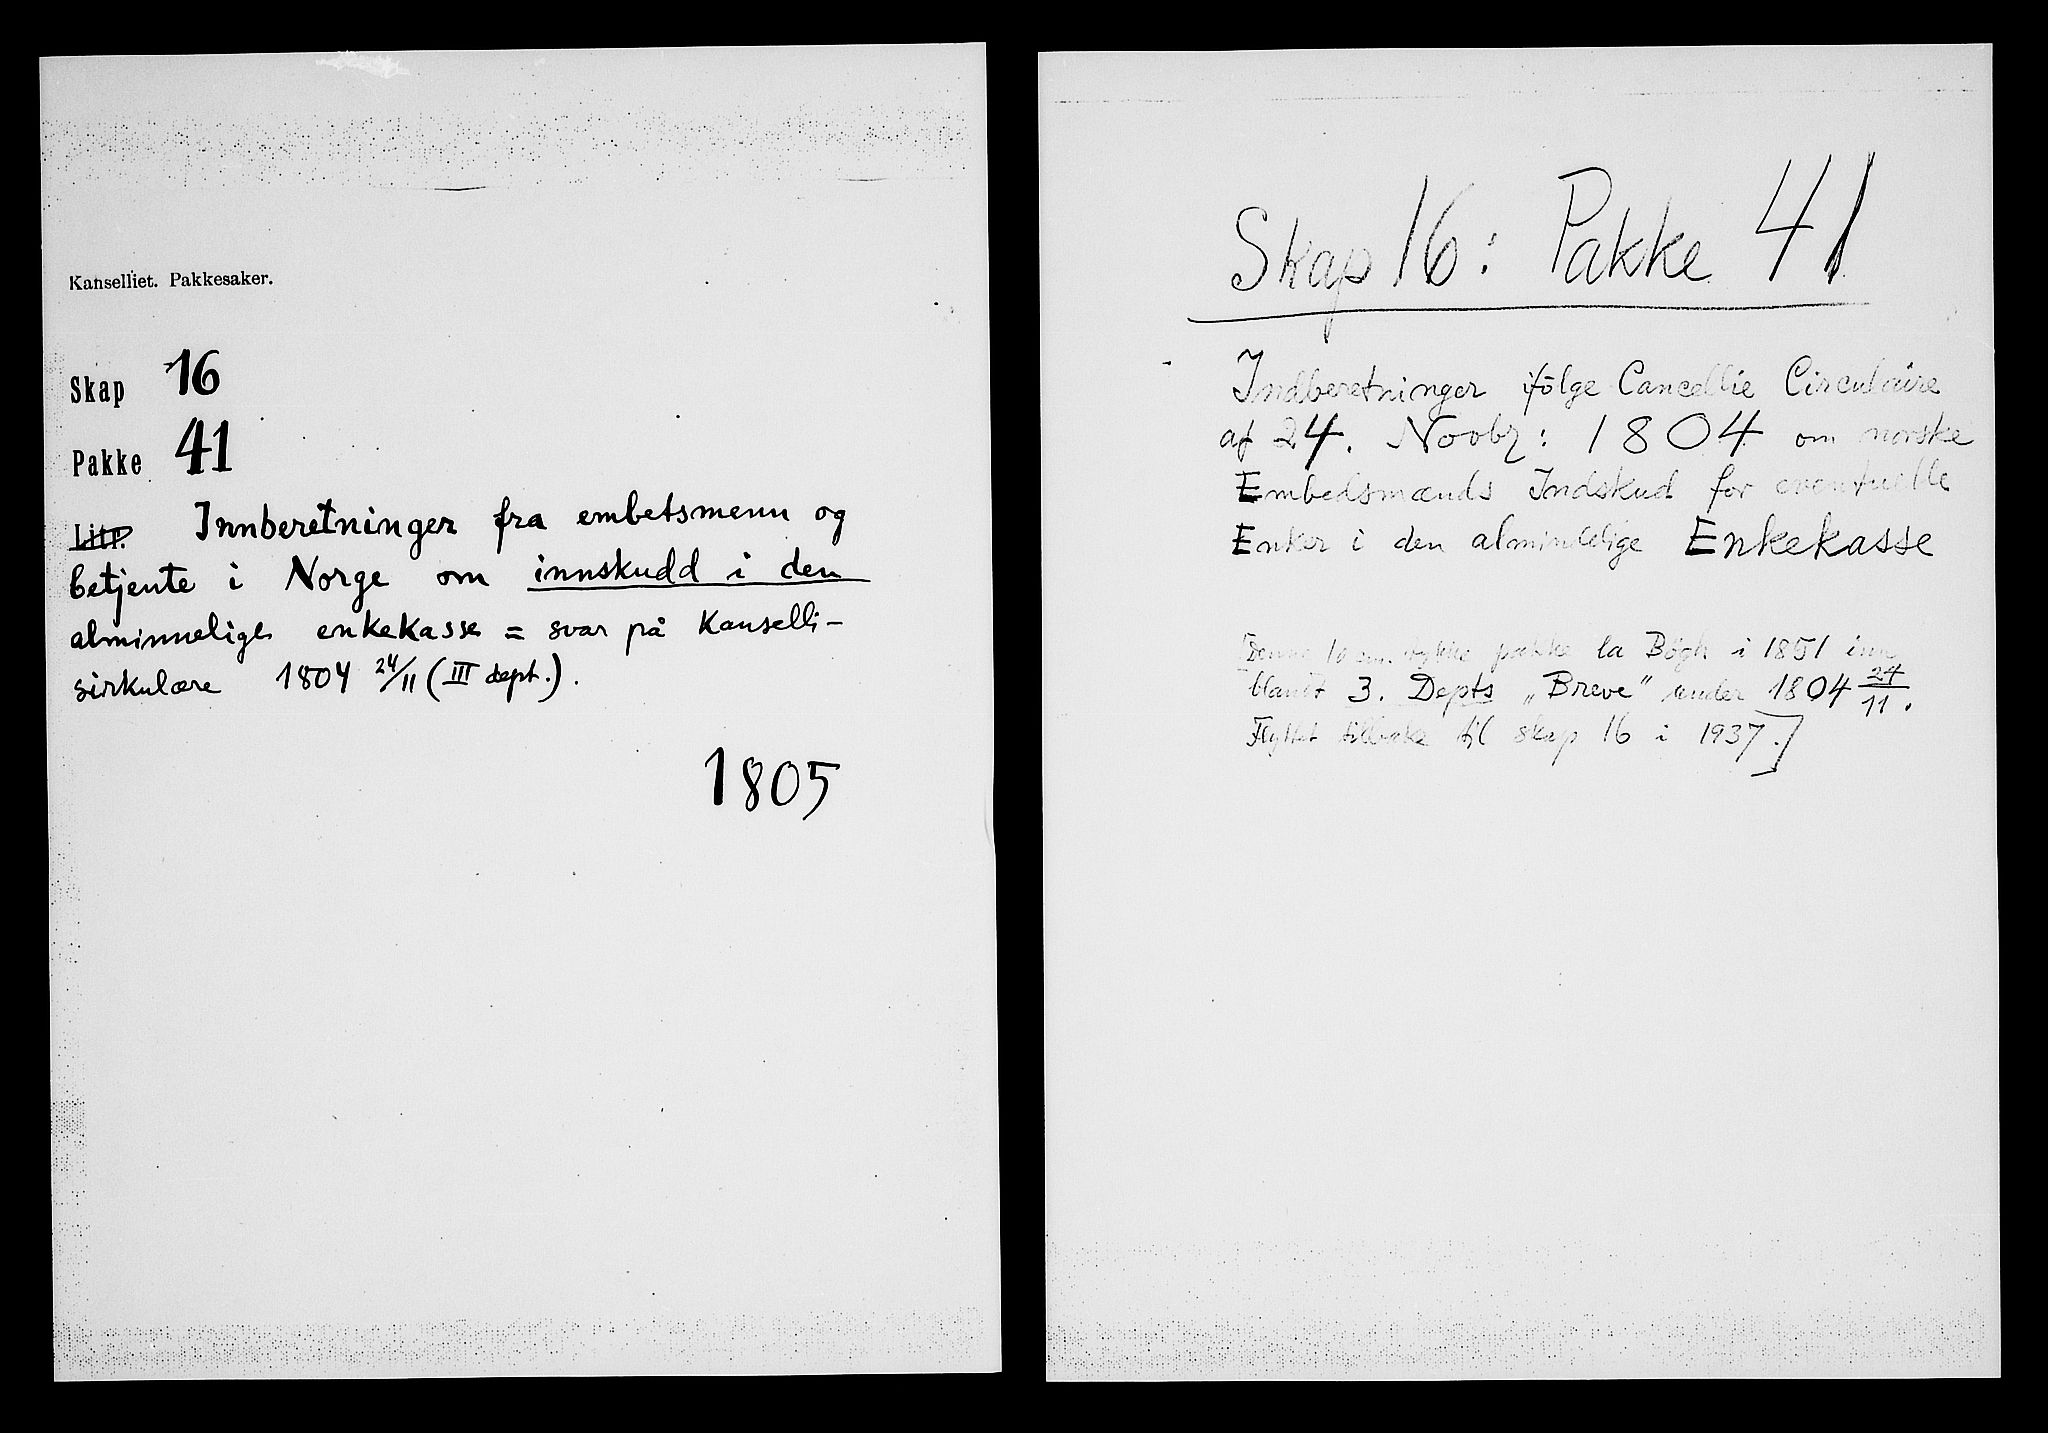 Kanselliet. Pakkesaker.
Skap 16
Pakke 41
Litr. Innberetninger fra embetsmenn og
betjente i Norge om innskudd i den
alminnelige enkekasse = svar på Kanselli-
sirkulære 1804 24/11 (III dept.).
1805
Skap 16: Pakke 41
Indberetninger ifölge Cancellie Circulaire
af 24. Novbr: 1804 om norske
Embedsmænds Indskud for eventuelle
Enker i den almindelige Enkekasse
[Denne 10 cm. tykke pakke la Bögh i 1851 inn
blandt 3. Depts „Breve" under 1804 24/11.
Flyttet tilbake til skap 16 i 1937.]